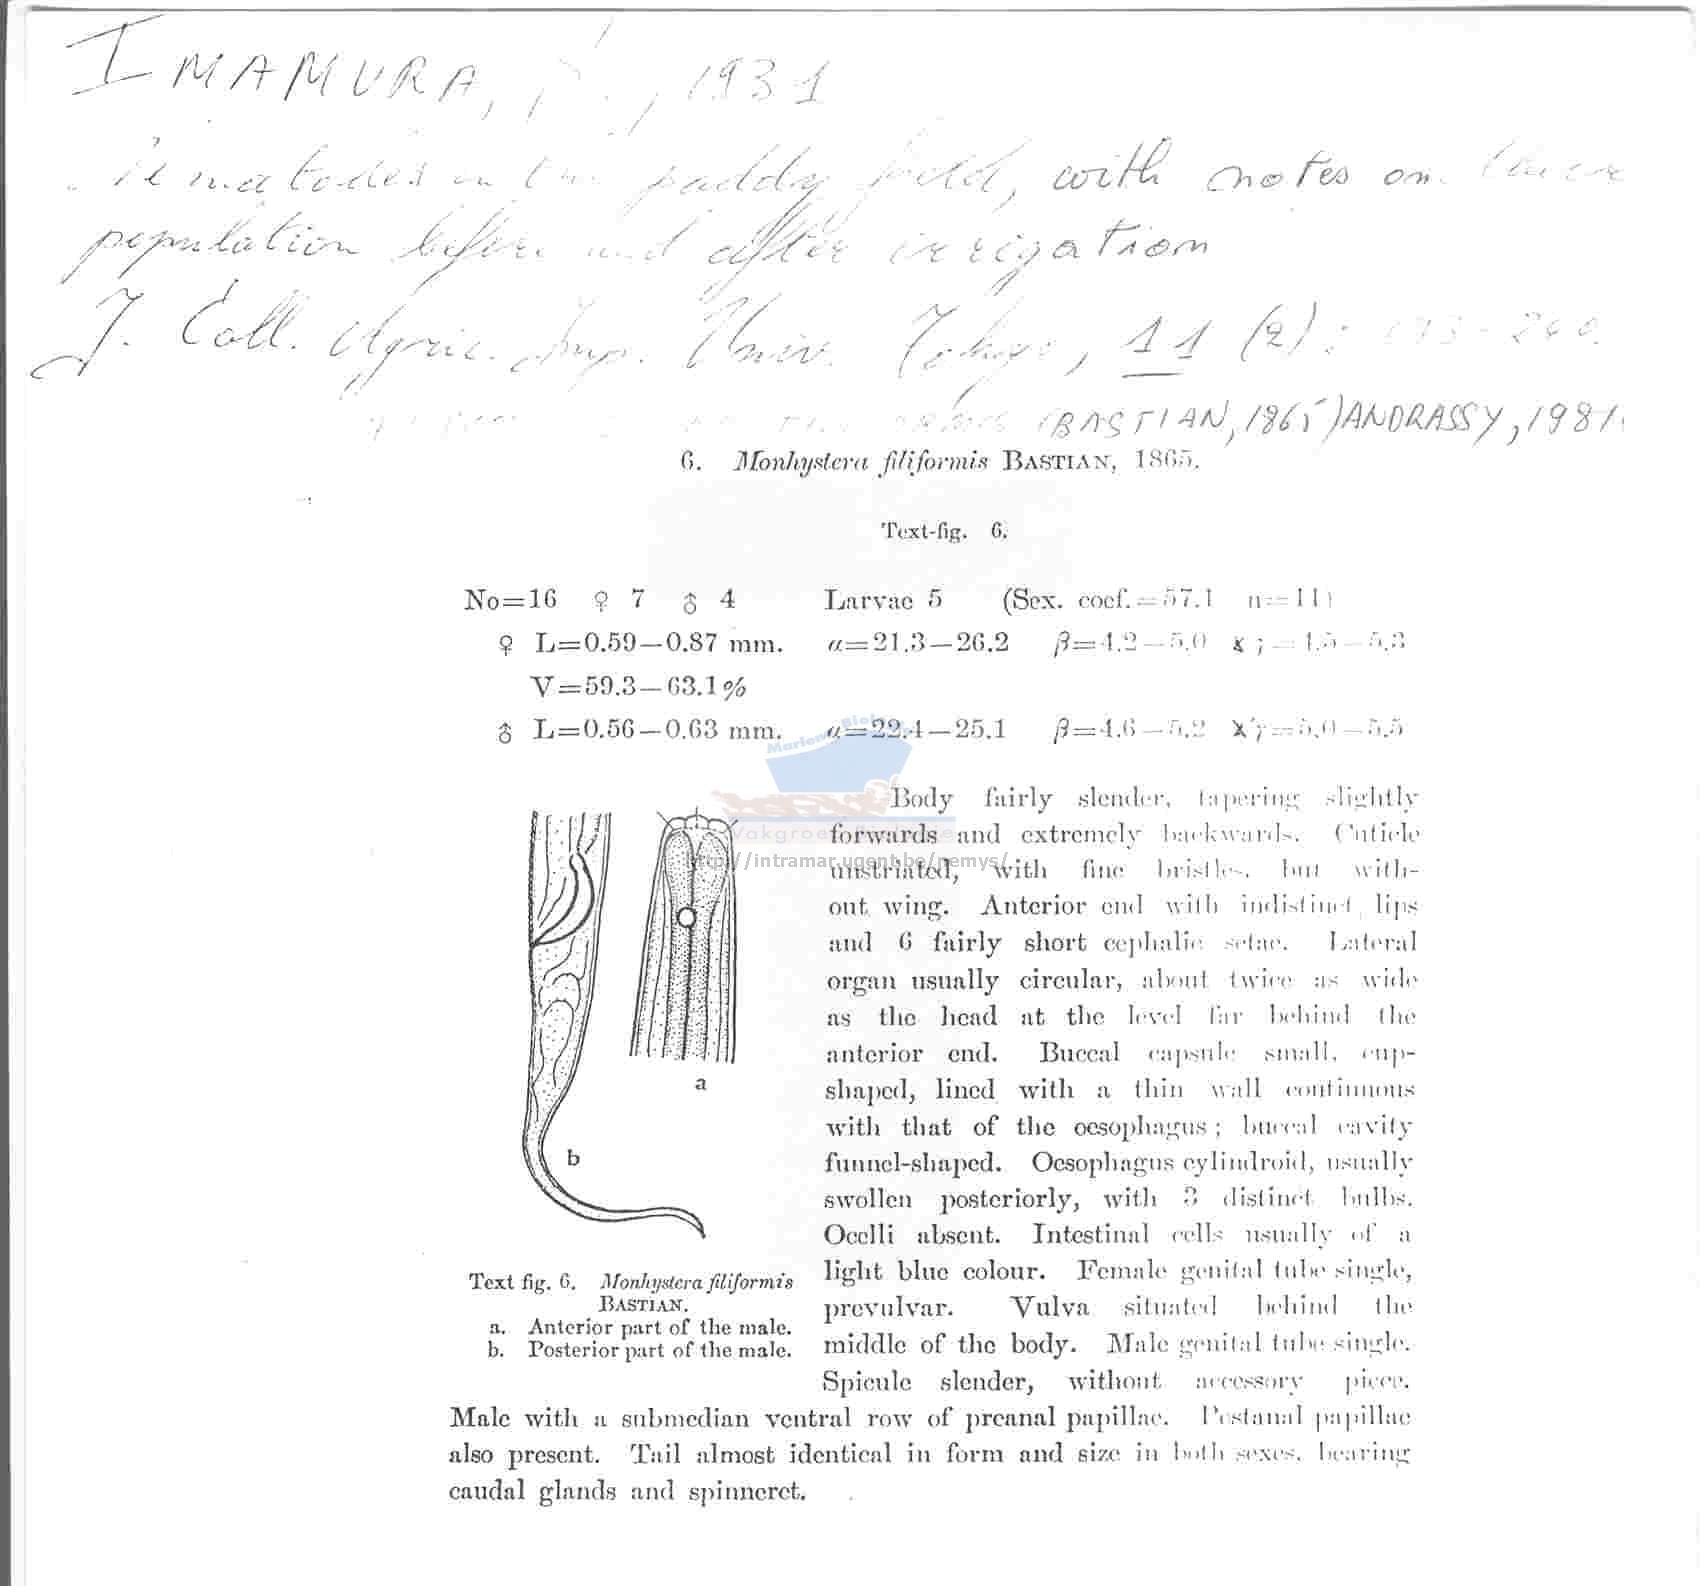 IMAMURA, 1931
Nematodes in the paddy field, with notes on their
population before and after irrigation
J. Coll. Agric. Imp. Univ. Tokyo, 11 (2): 193-240.
(BASTIAN, 1865) ANDRASSY, 1981
6. Monhystera filiformis BASTIAN, 1865.
Text-fig. 6.
No=16 ♀ 7 ♂ 4 Larvae 5 (Sex. coef.=57.1 n=11)
♀ L=0.59—0.87 mm. α=21.3—26.2 β=4.2—5.0 γ=4.5—5.3
V=59.3—63.1%
♂ L=0.56—0.63 mm. α=22.4—25.1 β=4.6—5.2 γ=5.0—5.5
Marine Biology
Vakgroep
http://intramar.ugent.be/nemys/
Body fairly slender, tapering slightly
forwards and extremely backwards. Cuticle
unstriated, with fine bristles, but with-
out wing. Anterior end with indistinct lips
and 6 fairly short cephalic setae. Lateral
organ usually circular, about twice as wide
as the head at the level far behind the
anterior end. Buccal capsule small, cup-
shaped, lined with a thin wall continuous
with that of the oesophagus; buccal cavity
funnel-shaped. Oesophagus cylindroid, usually
swollen posteriorly, with 3 distinct bulbs.
Ocelli absent. Intestinal cells usually of a
light blue colour. Female genital tube single,
prevulvar. Vulva situated behind the
middle of the body. Male genital tube single.
Spicule slender, without accessory piece.
Male with a submedian ventral row of preanal papillae. Postanal papillae
also present. Tail almost identical in form and size in both sexes, bearing
caudal glands and spinneret.
a
b
Text fig. 6. Monhystera filiformis
BASTIAN.
a. Anterior part of the male.
b. Posterior part of the male.